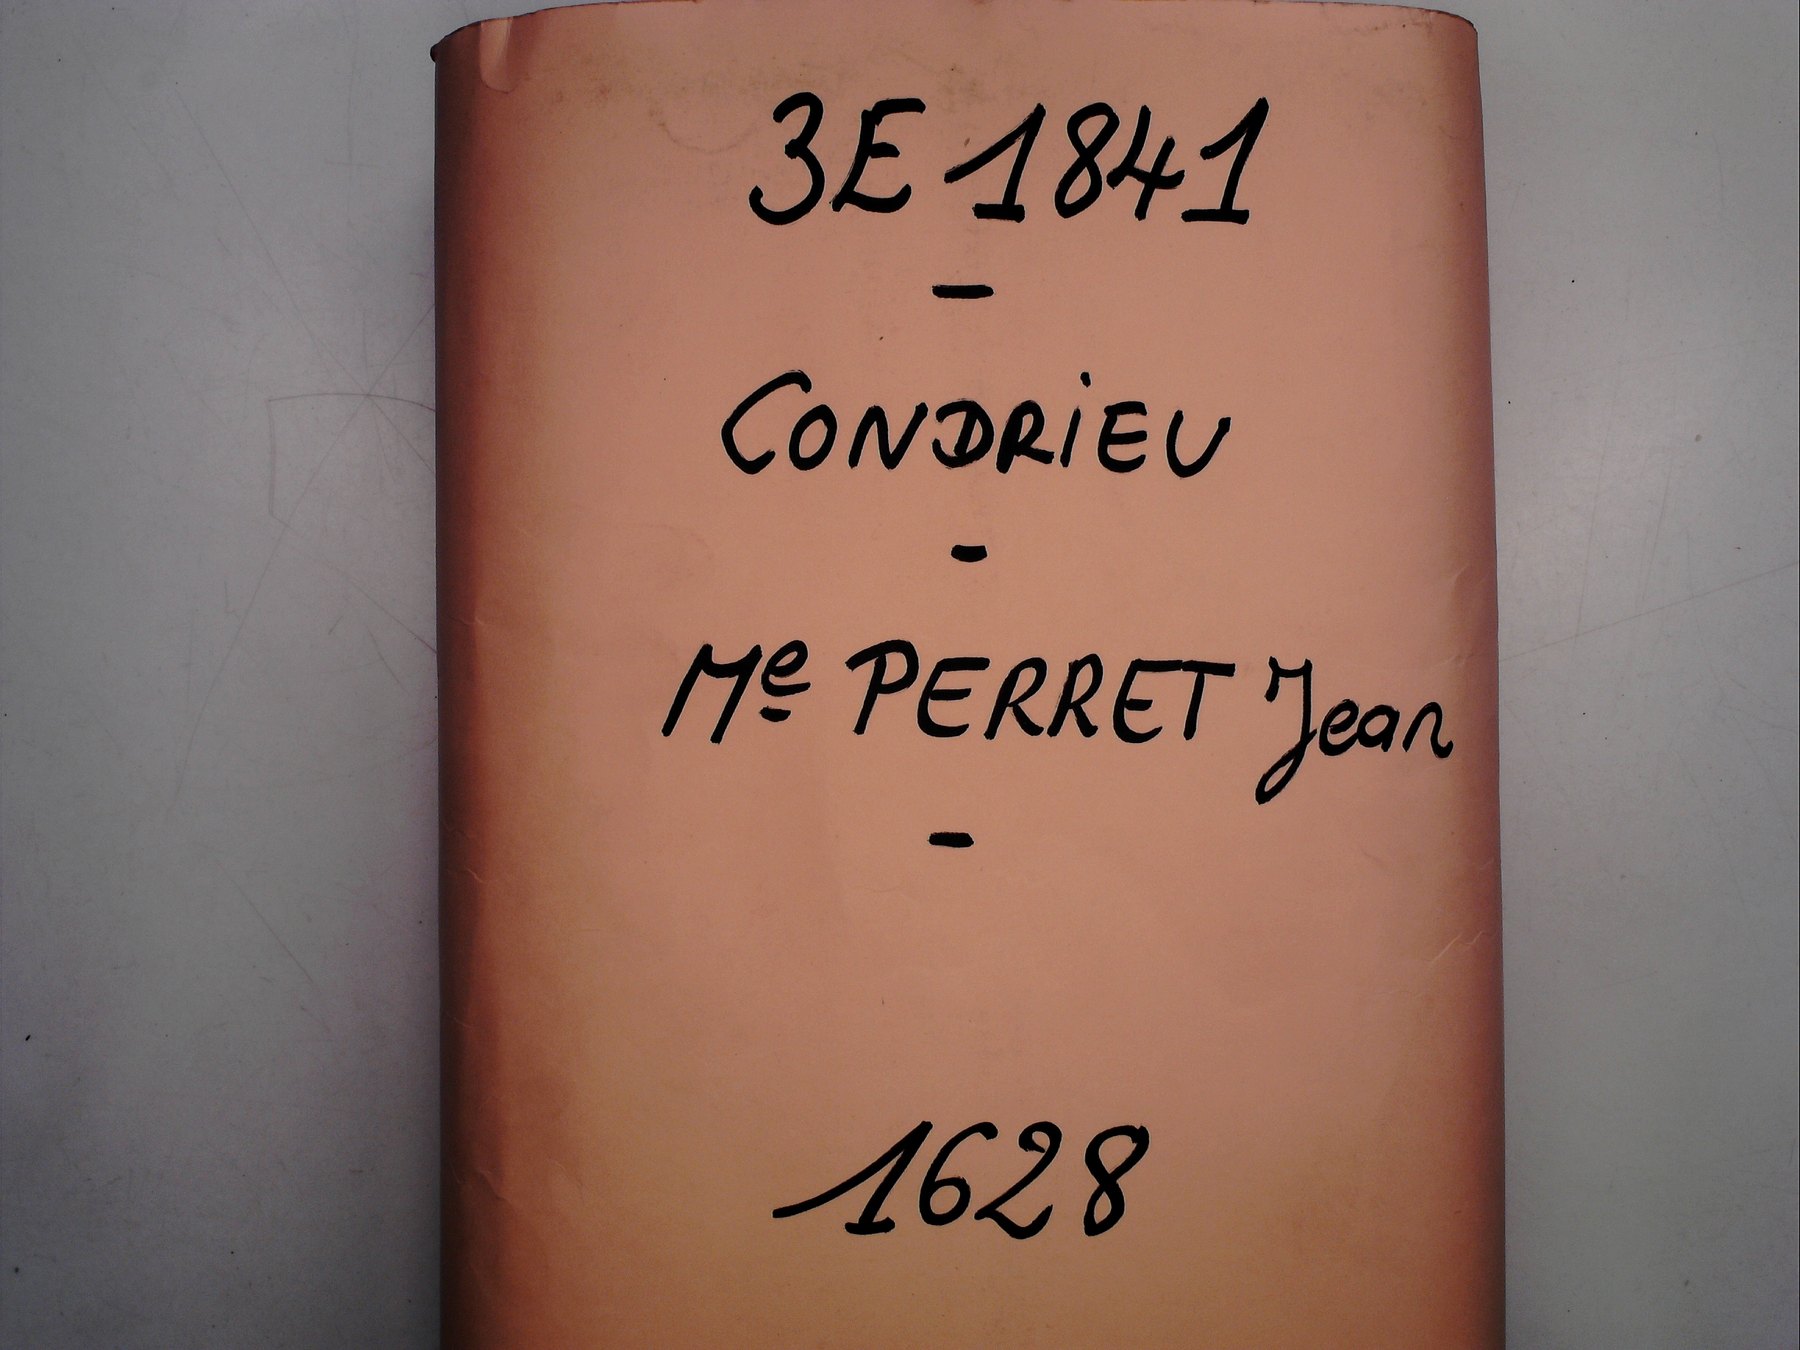 3E 1841
-
CONDRIEU
-
Me PERRET Jean
-
1628